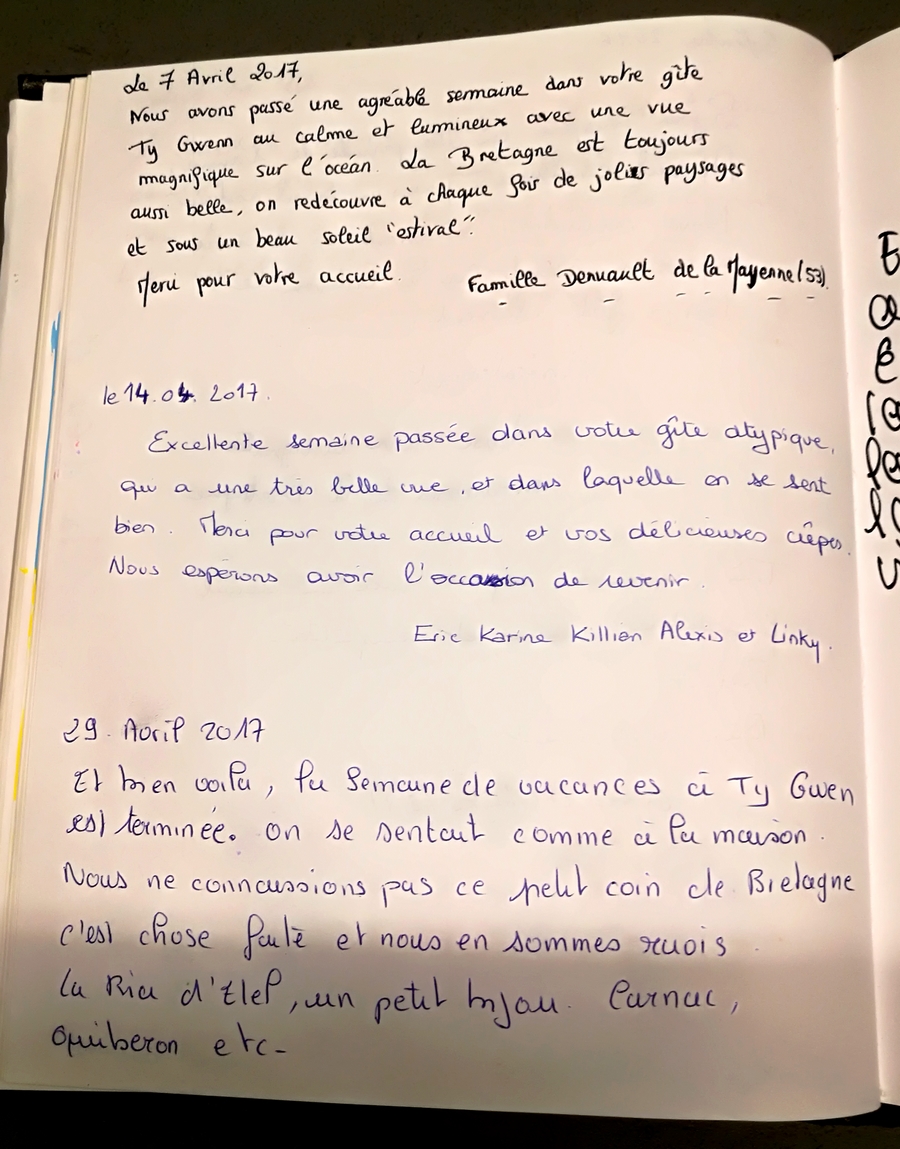 Le 7 Avril 2017,
Nous avons passé une agréable semaine dans votre gîte
Ty Gwenn au calme et lumineux avec une vue
magnifique sur l'océan. La Bretagne est toujours
aussi belle, on redécouvre à chaque fois de jolies paysages
et sous un beau soleil "estival".
Merci pour votre accueil.
Famille Denuault de la Mayenne (53).
le 14.04.2017.
Excellente semaine passée dans votre gîte atypique,
qui a une très belle vue, et dans laquelle on se sent
bien. Merci pour votre accueil et vos délicieuses crêpes.
Nous espérons avoir l'occasion de revenir.
Eric Karine Killian Alexis et Linky.
29. Avril 2017
Et bien voila, la semaine de vacances à Ty Gwen
est terminée. on se sentait comme à la maison.
Nous ne connaissions pas ce petit coin de Bretagne
c'est chose faite et nous en sommes ravis.
La Ria d'Etel, un petit bijou. Carnac,
Quiberon etc-